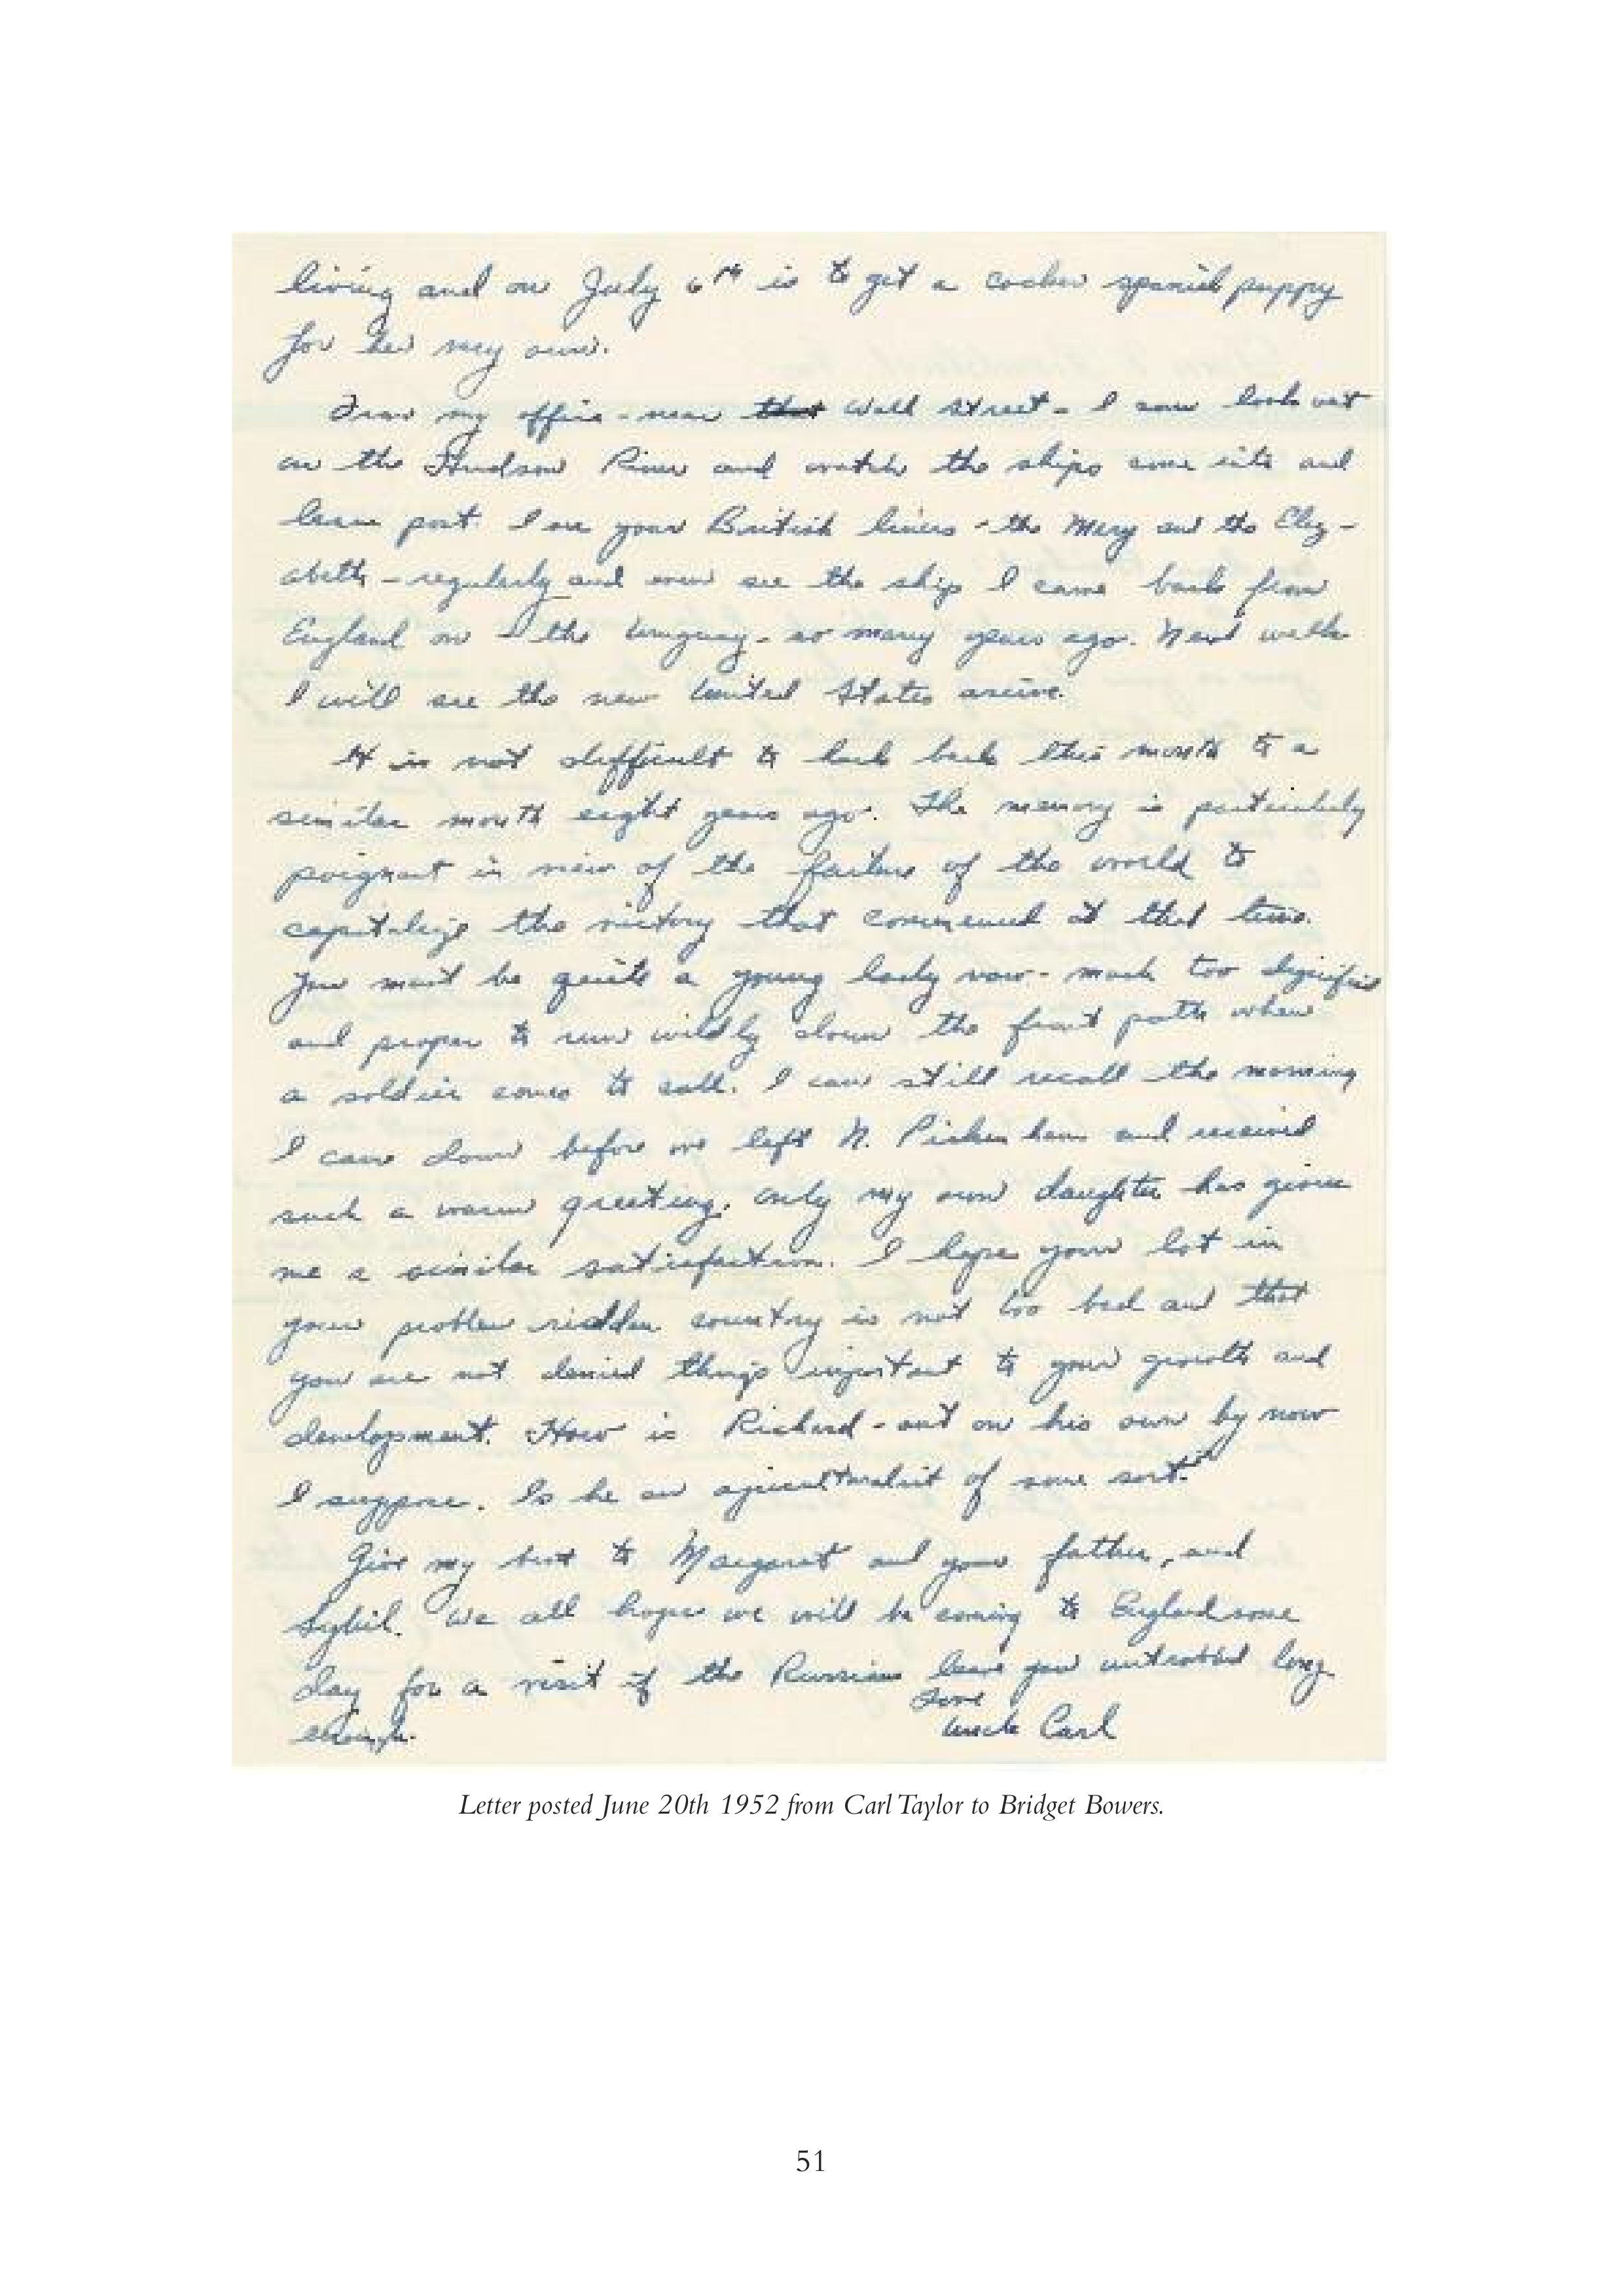 living and on July 6th is to get a cocker spaniel puppy
for her very own.
From my office - near Wall Street - I can look out
on the Hudson River and watch the ships come into and
leave port. I see your British liners - the Mary and the Eliz-
abeth - regularly and even see the ship I came back from
England on - the Uruguay - so many years ago. Next week
I will see the new United States arrive.
It is not difficult to look back this month to a
similar month eight years ago. The memory is particularly
poignant in view of the failure of the world to
capitalize the victory that commenced at that time.
You must be quite a young lady now - much too dignified
and proper to run wildly down the front path when
a soldier comes to call. I can still recall the morning
I came down before we left N. Pickenham and received
such a warm greeting. Only my own daughter has given
me a similar satisfaction. I hope your lot in
your problem ridden country is not too bad and that
you are not denied things important to your growth and
development. How is Richard - out on his own by now
I suppose. Is he an agriculturalist of some sort?
Give my best to Margaret and your father, and
Sybil. We all hope we will be coming to England some
day for a visit if the Russians leave you untroubled long
enough.
Love
Uncle Carl
Letter posted June 20th 1952 from Carl Taylor to Bridget Bowers.
51